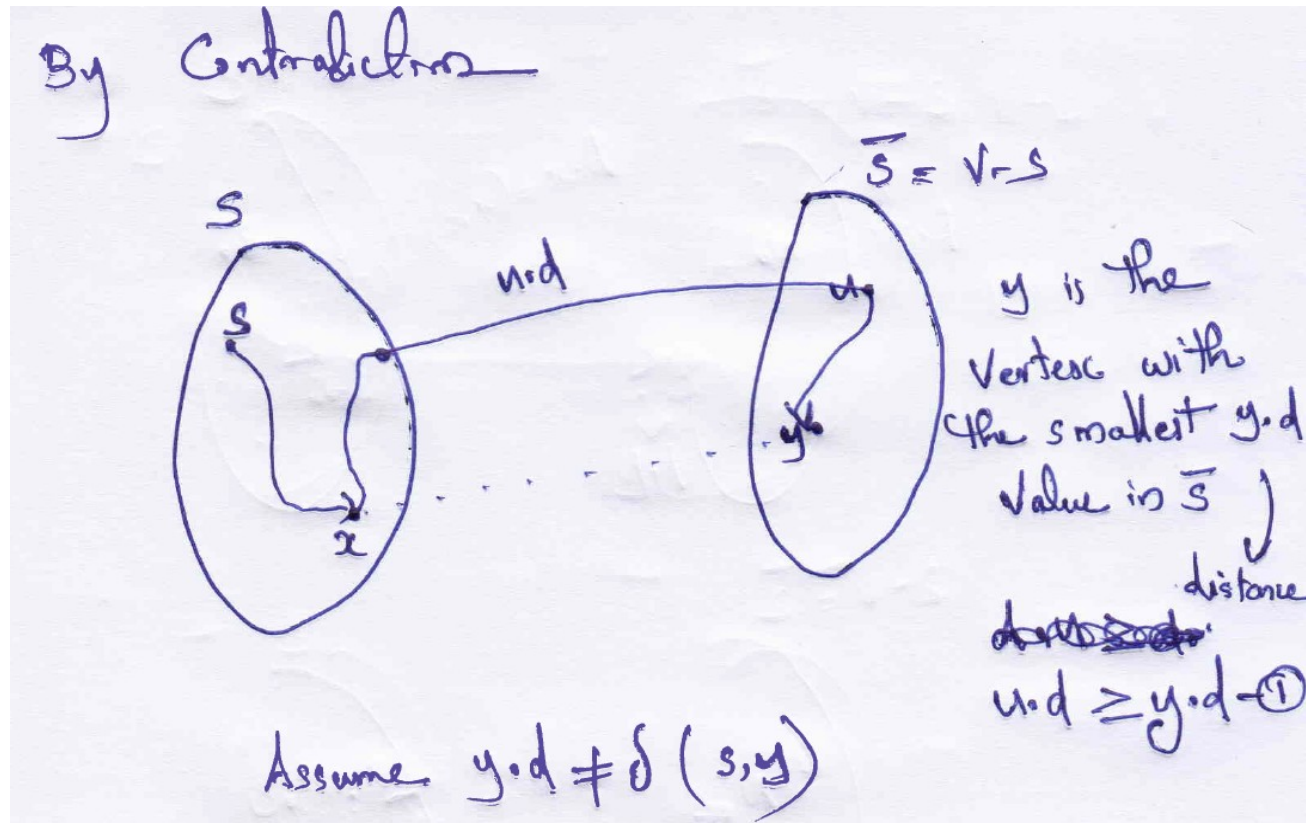 By Contradiction
S̅ = V-S
S
u.d
u
S
y is the
Vertex with
the smallest y.d
Value in S̅
y
x
distance
u.d ≥ y.d -①
Assume y.d ≠ δ (s,y)